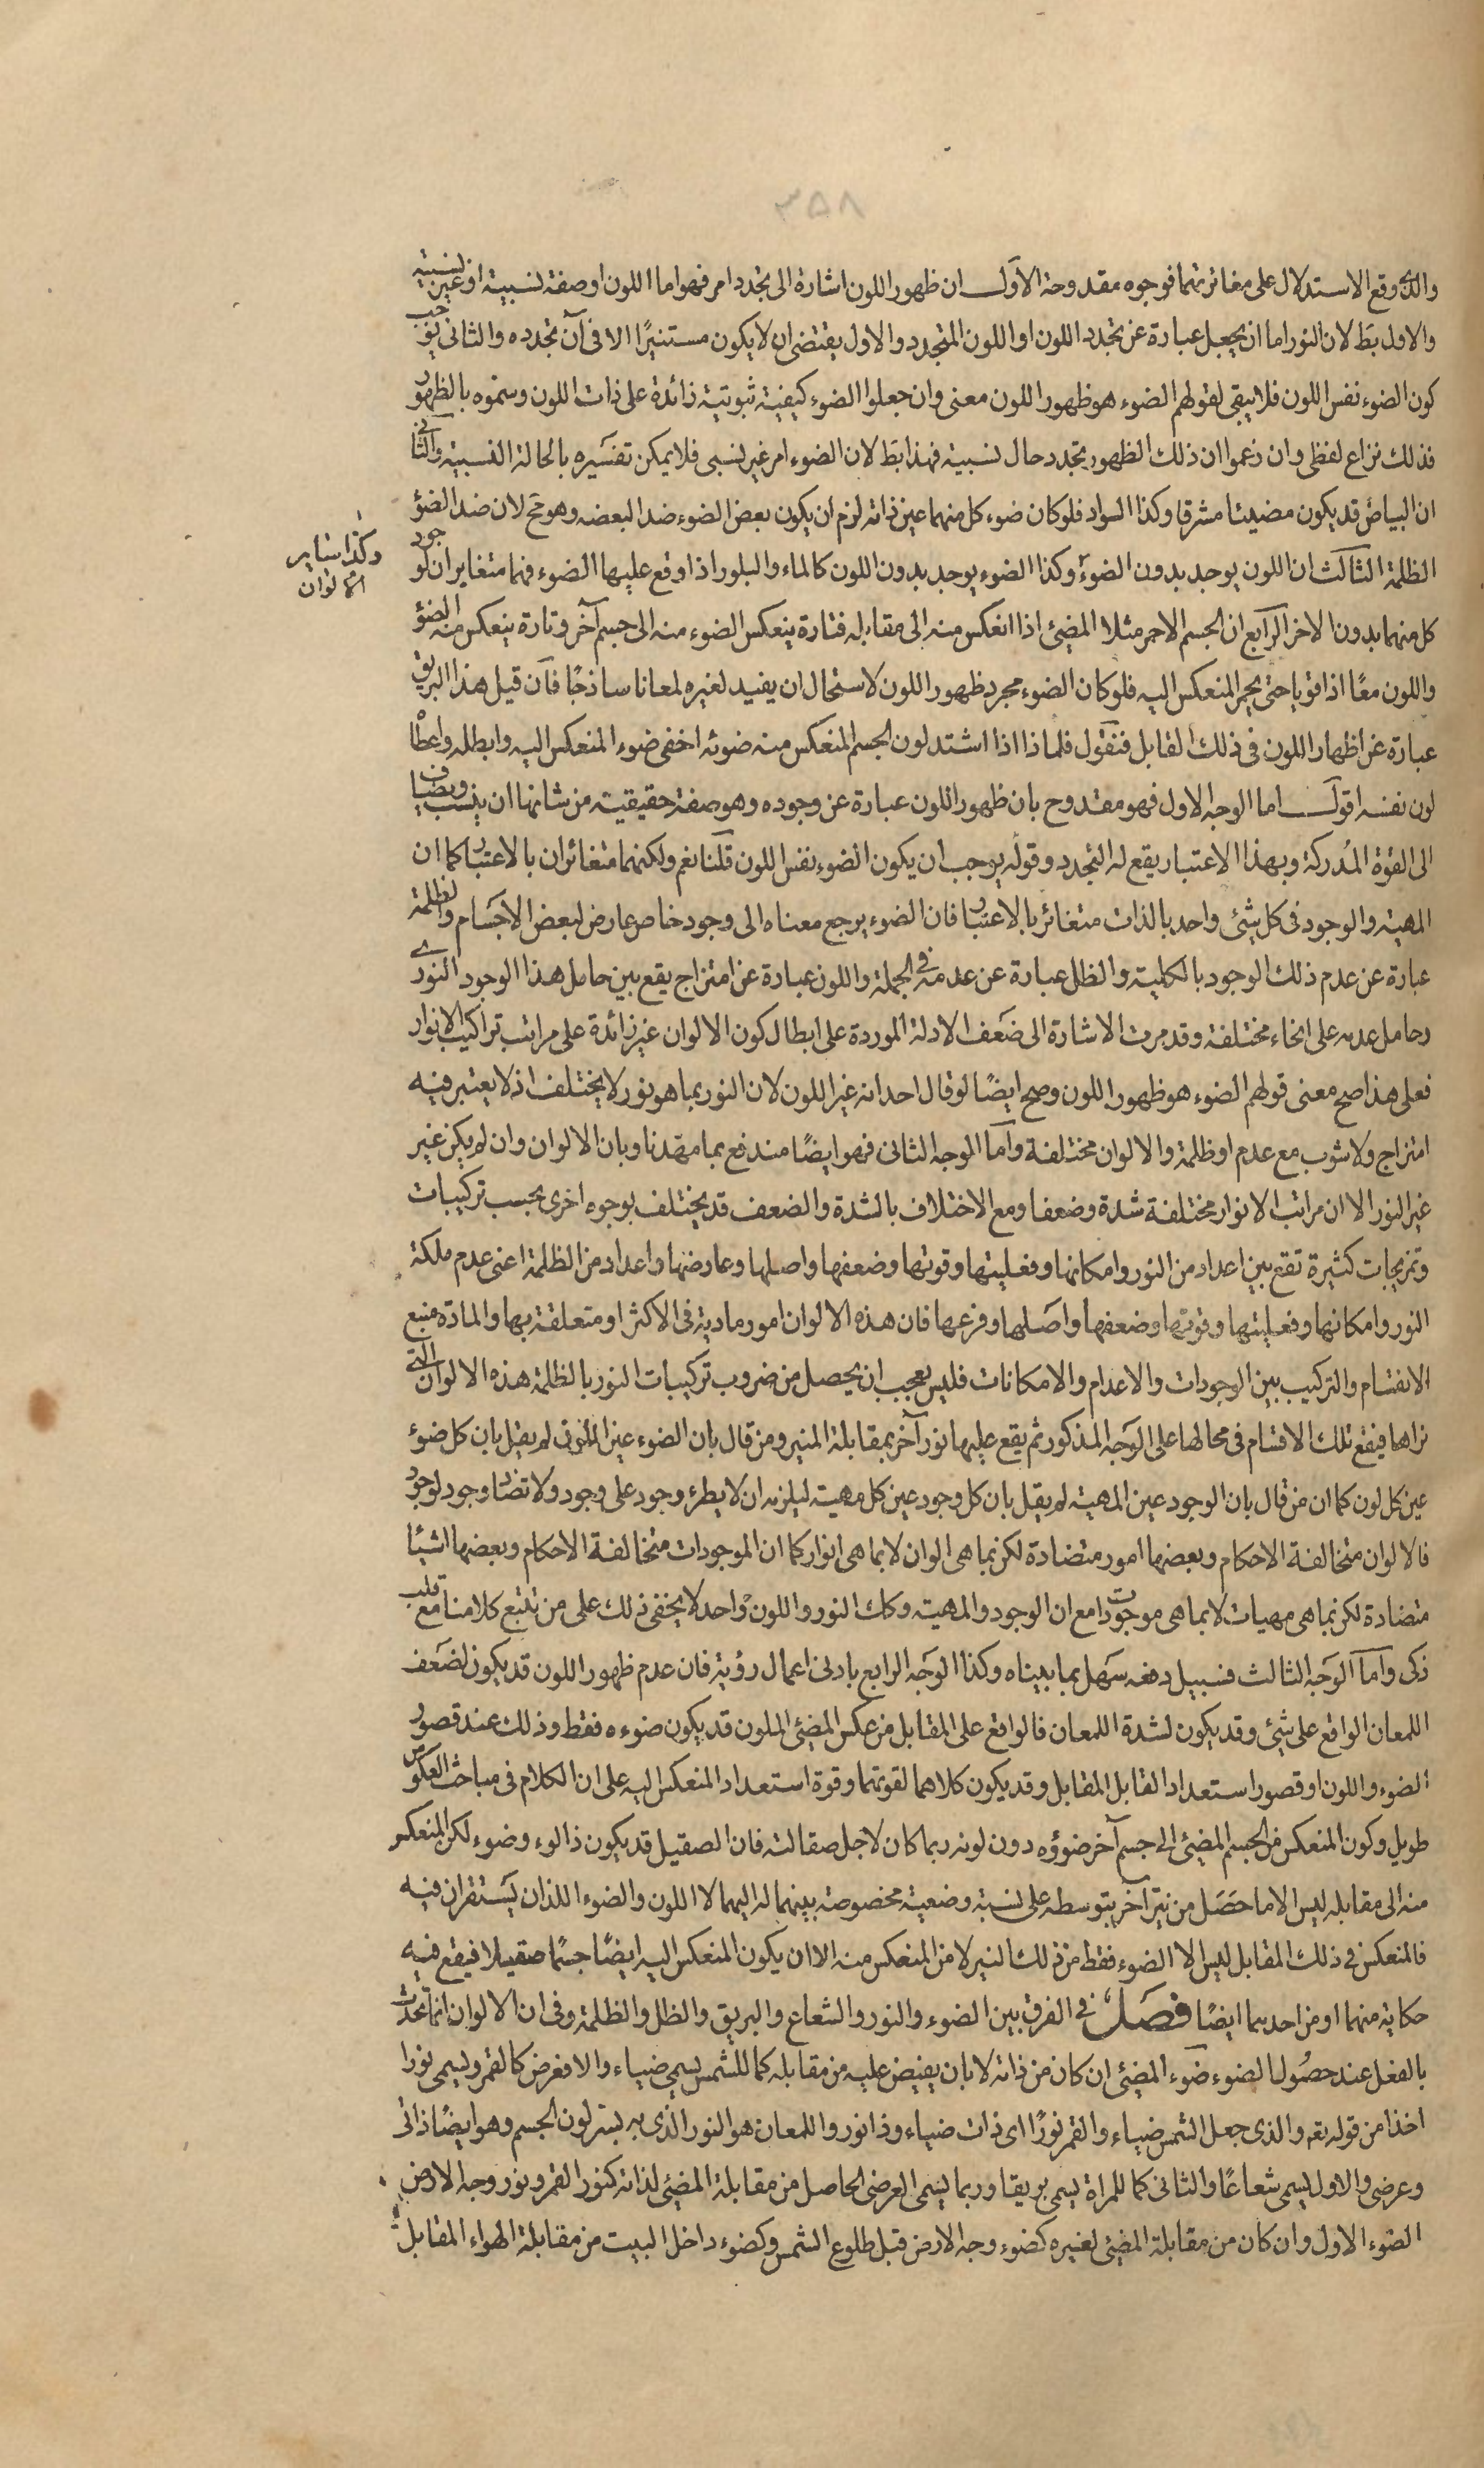 ٣٥٨
والذى وقع الاستدلال على مغائرتهما فوجوه مقدوحة الاول ان ظهور اللون اشارة الى تجدد امر فهو اما اللون او صفة نسبية او غير نسبية
والاول بط لان النور اما ان يجعل عبارة عن تجدد اللون او اللون المتجدد والاول يقتضى ان لا يكون مستنيرًا الا فى آن تجدده والثانى يوجب
كون الضوء نفس اللون فلا يبقى لقولهم الضوء هو ظهور اللون معنى وان جعلوا الضوء كيفية ثبوتية زائدة على ذات اللون وسموه بالظهور
فذلك نزاع لفظى وان زعموا ان ذلك الظهور تجدد حال نسبية فهذا بط لان الضوء امر غير نسبى فلا يمكن تفسيره بالحالة النسبية والثانى
ان البياض قد يكون مضيئا مشرقا وكذا السواد فلو كان ضوء كل منهما عين ذاته لزم ان يكون بعض الضوء ضد البعضه وهو مح لان ضد الضوء
وكذا ساير
الالوان
الظلمة الثالث ان اللون يوجد بدون الضوء وكذا الضوء يوجد بدون اللون كالماء والبلور اذا وقع عليها الضوء فهما متغايران لوجود
كل منهما بدون الاخر الرابع ان الجسم الاحمر مثلا المضيئ اذا انعكس منه الى مقابله فتارة ينعكس الضوء منه الى جسم آخر وتارة ينعكس منه الضوء
واللون معًا اذا قويا حتى يحمر المنعكس اليه فلو كان الضوء مجرد ظهور اللون لاستحال ان يفيد لغيره لمعانا ساذجًا فان قيل هذا البريق
عبارة عن اظهار اللون فى ذلك القابل فنقول فلماذا اذا اشتد لون الجسم المنعكس منه ضوئه اخفى ضوء المنعكس اليه وابطله واعطا
لون نفسه اقول اما الوجه الاول فهو مقدوح بان ظهور اللون عبارة عن وجوده وهو صفة حقيقية من شانها ان ينسب ويضاف
الى القوة المدركة وبهذا الاعتبار يقع له التجدد وقوله يوجب ان يكون الضوء نفس اللون قلنا نعم ولكنهما متغائران بالاعتبار كما ان
المهية والوجود فى كل شئ واحد بالذات متغائر بالاعتبار فان الضوء يرجع معناه الى وجود خاص عارض لبعض الاجسام والظلمة
عبارة عن عدم ذلك الوجود بالكلية والظل عبارة عن عدمه فى الجملة واللون عبارة عن امتزاج يقع بين حامل هذا الوجود النورى
وحامل عدمه على انحاء مختلفة وقد مرت الاشارة الى ضعف الادلة الموردة على ابطال كون الالوان غير زائدة على مراتب تراكيب الانوار
فعلى هذا صح معنى قولهم الضوء هو ظهور اللون وصح ايضًا لو قال احد انه غير اللون لان النور بما هو نور لا يختلف اذ لا يعتبر فيه
امتزاج ولا شوب مع عدم او ظلمة والالوان مختلفة واما الوجه الثانى فهو ايضًا مندفع بما مهدنا وبان الالوان وان لم يكن غير
غير النور الا ان مراتب الانوار مختلفة شدة وضعفا ومع الاختلاف بالشدة والضعف قد يختلف بوجوه اخرى بحسب تركيبات
وتمزيجات كثيرة تقع بين اعداد من النور وامكانها وفعليتها وقوتها وضعفها واصلها وعارضها واعداد من الظلمة اعنى عدم ملكة
النور وامكانها وفعليتها وقوتها وضعفها واصلها وفرعها فان هذه الالوان امور مادية فى الاكثر او متعلقة بها والمادة منبع
الانقسام والتركيب بين الوجودات والاعدام والامكانات فليس بعجب ان يحصل من ضروب تركيبات النور بالظلمة هذه الالوان التى
نراها فيقع تلك الاقسام فى محالها على الوجه المذكور ثم يقع عليها نور آخر بمقابلة المنير ومن قال بان الضوء عين اللون لم يقل بان كل ضوء
عين كل لون كما ان من قال بان الوجود عين المهية لم يقل بان كل وجود عين كل مهية ليلزمه ان لا يطرء وجود على وجود ولا تضاد وجود لوجود
فالالوان متخالفة الاحكام وبعضها امور متضادة لكن بما هى الوان لا بما هى انوار كما ان الموجودات متخالفة الاحكام وبعضها اشيئا
متضادة لكن بما هى مهيات لا بما هى موجودات مع ان الوجود والمهية وكك النور واللون واحد لا يخفى ذلك على من تتبع كلامنا مع قلب
ذكى واما الوجه الثالث فسبيل دفعه سهل بما بيناه وكذا الوجه الرابع بادنى اعمال رؤية فان عدم ظهور اللون قد يكون لضعف
اللمعان الواقع على شئ وقد يكون لشدة اللمعان فالواقع على المقابل من عكس المضيئ الملون قد يكون ضوءه فقط وذلك عند قصور
الضوء واللون او قصور استعداد القابل المقابل وقد يكون كلاهما لقوتهما وقوة استعداد المنعكس اليه على ان الكلام فى مباحث العكوس
طويل وكون المنعكس من الجسم المضيئ الى جسم آخر ضوؤه دون لونه ربما كان لاجل صقالته فان الصقيل قد يكون ذا لون وضوء لكن المنعكس
منه الى مقابله ليس الا ما حصل من نير آخر بتوسطه على نسبة وضعية مخصوصة بينهما له اليهما لا اللون والضوء اللذان يستقران فيه
فالمنعكس فى ذلك المقابل ليس الا الضوء فقط من ذلك النير لا من المنعكس منه الا ان يكون المنعكس اليه ايضًا جسمًا صقيلا فيقع فيه
حكاية منهما او من احدهما ايضًا فصل فى الفرق بين الضوء والنور والشعاع والبريق والظل والظلمة وفى ان الالوان انما تحدث
بالفعل عند حصول الضوء ضوء المضيئ ان كان من ذاته لا بان يفيض عليه من مقابله كما للشمس يسمى ضياء والا فعرض كالقمر ويسمى نورا
اخذا من قوله تعه والذى جعل الشمس ضياء والقمر نورًا اى ذات ضياء وذا نور واللمعان هو النور الذى به يستر لون الجسم وهو ايضًا ذاتى
وعرضى والاول يسمى شعاعًا والثانى كما للمراة يسمى بريقا وربما يسمى العرضى الحاصل من مقابلة المضيئ لذاته كنور القمر ونور وجه الارض
الضوء الاول وان كان من مقابلة المضيئ لغيره كضوء وجه الارض قبل طلوع الشمس وكضوء داخل البيت من مقابلة الهواء المقابل